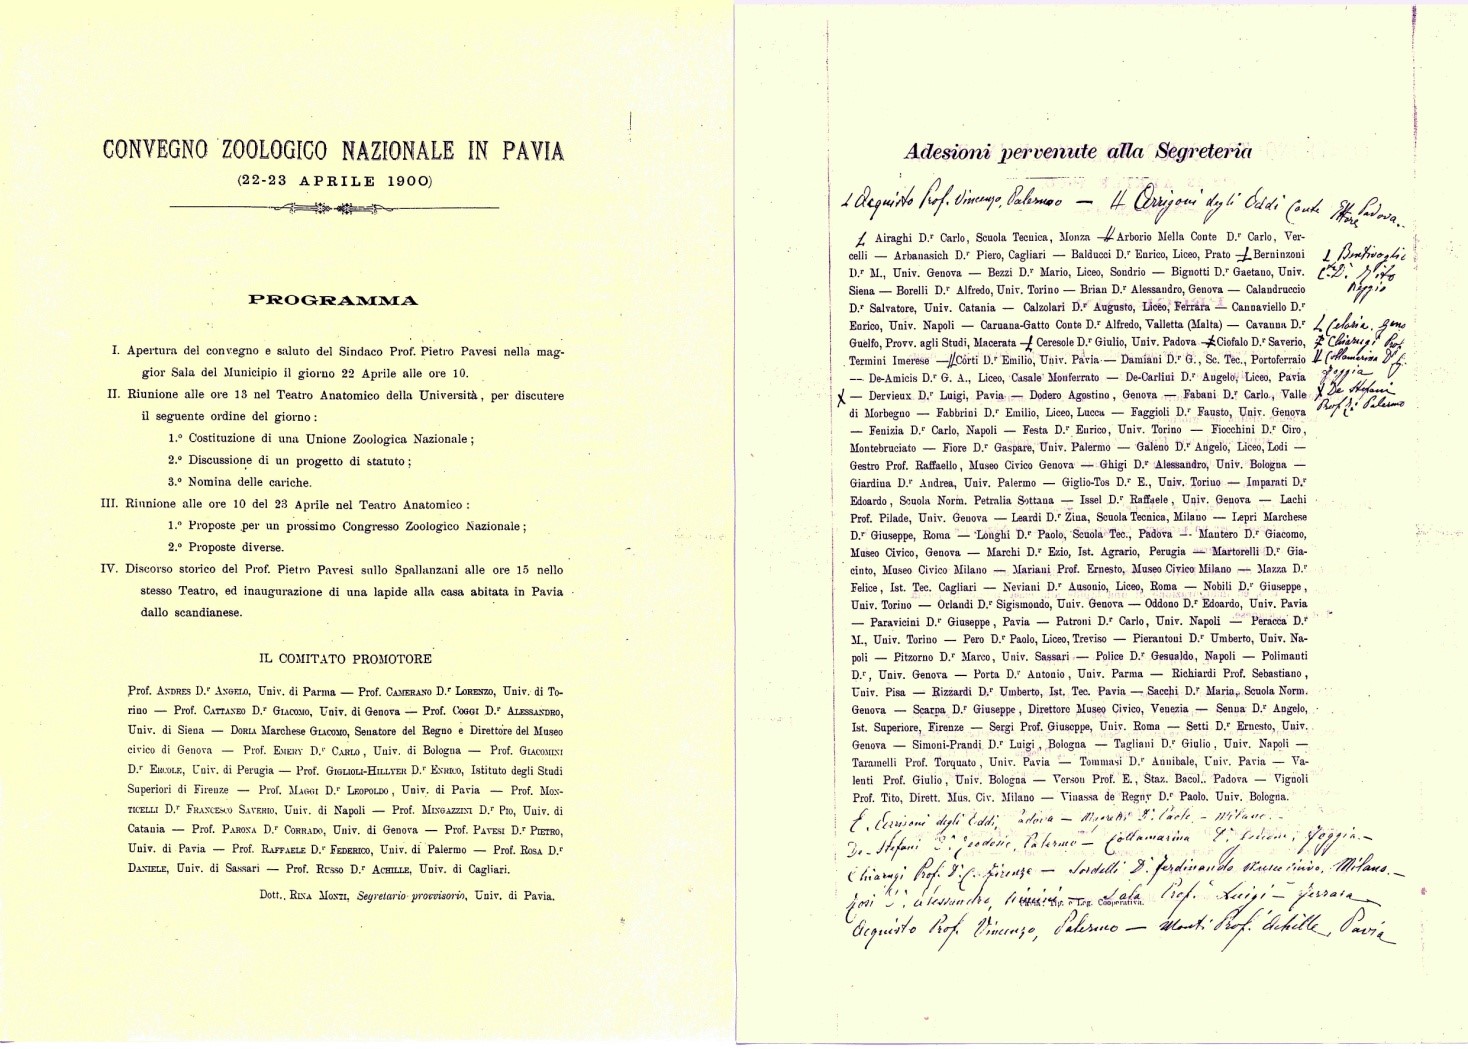 CONVEGNO ZOOLOGICO NAZIONALE IN PAVIA
(22-23 APRILE 1900)
PROGRAMMA
I. Apertura del convegno e saluto del Sindaco Prof. Pietro Pavesi nella mag-
gior Sala del Municipio il giorno 22 Aprile alle ore 10.
II. Riunione alle ore 13 nel Teatro Anatomico della Università, per discutere
il seguente ordine del giorno :
1.º Costituzione di una Unione Zoologica Nazionale ;
2.º Discussione di un progetto di statuto ;
3.º Nomina delle cariche.
III. Riunione alle ore 10 del 23 Aprile nel Teatro Anatomico :
1.º Proposte per un prossimo Congresso Zoologico Nazionale ;
2.º Proposte diverse.
IV. Discorso storico del Prof. Pietro Pavesi sullo Spallanzani alle ore 15 nello
stesso Teatro, ed inaugurazione di una lapide alla casa abitata in Pavia
dallo scandianese.
IL COMITATO PROMOTORE
Prof. ANDRES D.r ANGELO, Univ. di Parma — Prof. CAMERANO D.r LORENZO, Univ. di To-
rino — Prof. CATTANEO D.r GIACOMO, Univ. di Genova — Prof. COGGI D.r ALESSANDRO,
Univ. di Siena — DORIA Marchese GIACOMO, Senatore del Regno e Direttore del Museo
civico di Genova — Prof. EMERY D.r CARLO, Univ. di Bologna — Prof. GIACOMINI
D.r ERCOLE, Univ. di Perugia — Prof. GIGLIOLI-HILLYER D.r ENRICO, Istituto degli Studi
Superiori di Firenze — Prof. MAGGI D.r LEOPOLDO, Univ. di Pavia — Prof. MON-
TICELLI D.r FRANCESCO SAVERIO, Univ. di Napoli — Prof. MINGAZZINI D.r PIO, Univ. di
Catania — Prof. PARONA D.r CORRADO, Univ. di Genova — Prof. PAVESI D.r PIETRO,
Univ. di Pavia — Prof. RAFFAELE D.r FEDERICO, Univ. di Palermo — Prof. ROSA D.r
DANIELE, Univ. di Sassari — Prof. RUSSO D.r ACHILLE, Univ. di Cagliari.
Dott. RINA MONTI, Segretario provvisorio, Univ. di Pavia.
Adesioni pervenute alla Segreteria
Acquisto Prof. Vincenzo, Palermo — Arrigoni degli Oddi Conte Ettore Padova.
Airaghi D.r Carlo, Scuola Tecnica, Monza — Arborio Mella Conte D.r Carlo, Ver-
celli — Arbanasich D.r Piero, Cagliari — Balducci D.r Enrico, Liceo, Prato — Berninzoni
D.r M., Univ. Genova — Bezzi D.r Mario, Liceo, Sondrio — Bignotti D.r Gaetano, Univ.
Siena — Borelli D.r Alfredo, Univ. Torino — Brian D.r Alessandro, Genova — Calandruccio
D.r Salvatore, Univ. Catania — Calzolari D.r Augusto, Liceo, Ferrara — Cannaviello D.r
Enrico, Univ. Napoli — Caruana-Gatto Conte D.r Alfredo, Valletta (Malta) — Cavanna D.r
Guelfo, Provv. agli Studi, Macerata — Ceresole D.r Giulio, Univ. Padova — Ciofalo D.r Saverio,
Termini Imerese — Corti D.r Emilio, Univ. Pavia — Damiani D.r G., Sc. Tec., Portoferraio
— De-Amicis D.r G. A., Liceo, Casale Monferrato — De-Carlini D.r Angelo, Liceo, Pavia
— Dervieux D.r Luigi, Pavia — Dodero Agostino, Genova — Fabani D.r Carlo, Valle
di Morbegno — Fabbrini D.r Emilio, Liceo, Lucca — Faggioli D.r Fausto, Univ. Genova
— Fenizia D.r Carlo, Napoli — Festa D.r Enrico, Univ. Torino — Fiocchini D.r Ciro,
Montebruciato — Fiore D.r Gaspare, Univ. Palermo — Galeno D.r Angelo, Liceo, Lodi —
Gestro Prof. Raffaello, Museo Civico Genova — Ghigi D.r Alessandro, Univ. Bologna —
Giardina D.r Andrea, Univ. Palermo — Giglio-Tos D.r E., Univ. Torino — Imparati D.r
Edoardo, Scuola Norm. Petralia Sottana — Issel D.r Raffaele, Univ. Genova — Lachi
Prof. Pilade, Univ. Genova — Leardi D.r Zina, Scuola Tecnica, Milano — Lepri Marchese
D.r Giuseppe, Roma — Longhi D.r Paolo, Scuola Tec., Padova — Mantero D.r Giacomo,
Museo Civico, Genova — Marchi D.r Ezio, Ist. Agrario, Perugia — Martorelli D.r Gia-
cinto, Museo Civico Milano — Mariani Prof. Ernesto, Museo Civico Milano — Mazza D.r
Felice, Ist. Tec. Cagliari — Neviani D.r Ausonio, Liceo, Roma — Nobili D.r Giuseppe,
Univ. Torino — Orlandi D.r Sigismondo, Univ. Genova — Oddono D.r Edoardo, Univ. Pavia
— Paravicini D.r Giuseppe, Pavia — Patroni D.r Carlo, Univ. Napoli — Peracca D.r
M., Univ. Torino — Pero D.r Paolo, Liceo, Treviso — Pierantoni D.r Umberto, Univ. Na-
poli — Pitzorno D.r Marco, Univ. Sassari — Police D.r Gesualdo, Napoli — Polimanti
D.r, Univ. Genova — Porta D.r Antonio, Univ. Parma — Richiardi Prof. Sebastiano,
Univ. Pisa — Rizzardi D.r Umberto, Ist. Tec. Pavia — Sacchi D.r Maria, Scuola Norm.
Genova — Scarpa D.r Giuseppe, Direttore Museo Civico, Venezia — Senna D.r Angelo,
Ist. Superiore, Firenze — Sergi Prof. Giuseppe, Univ. Roma — Setti D.r Ernesto, Univ.
Genova — Simoni-Prandi D.r Luigi, Bologna — Tagliani D.r Giulio, Univ. Napoli —
Taramelli Prof. Torquato, Univ. Pavia — Tommasi D.r Annibale, Univ. Pavia — Va-
lenti Prof. Giulio, Univ. Bologna — Verson Prof. E., Staz. Bacol. Padova — Vignoli
Prof. Tito, Dirett. Mus. Civ. Milano — Vinassa de Regny D.r Paolo. Univ. Bologna.
Bentivoglio
C.te D. Tito
Reggio
Celoria. Geno
Chiarugi Prof
Collamarina
Foggia
De Stefani
Prof. Palermo
E. Arrigoni degli Oddi, Padova — Milano. —
De-Stefani Palermo — Collamarina Foggia. —
Chiarugi Prof. D. G. Firenze — Sordelli D. Ferdinando Museo civico, Milano. —
Alessandro, — Sala Prof. Luigi — Ferrara
Acquisto Prof. Vincenzo, Palermo — Monti Prof. Achille, Pavia